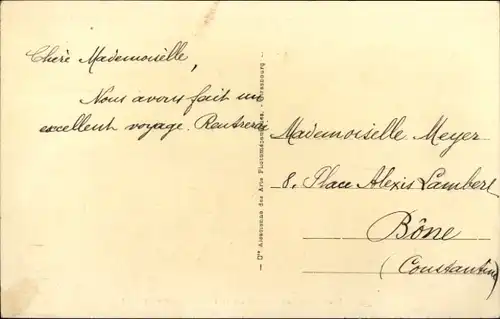 Chère Mademoiselle,
Nous avons fait un
excellent voyage. Rentrerai
Mademoiselle Meyer
8. Place Alexis Lambert
Bône
(Constantine)
— Cie Alsacienne des Arts Photomécaniques, Strasbourg —